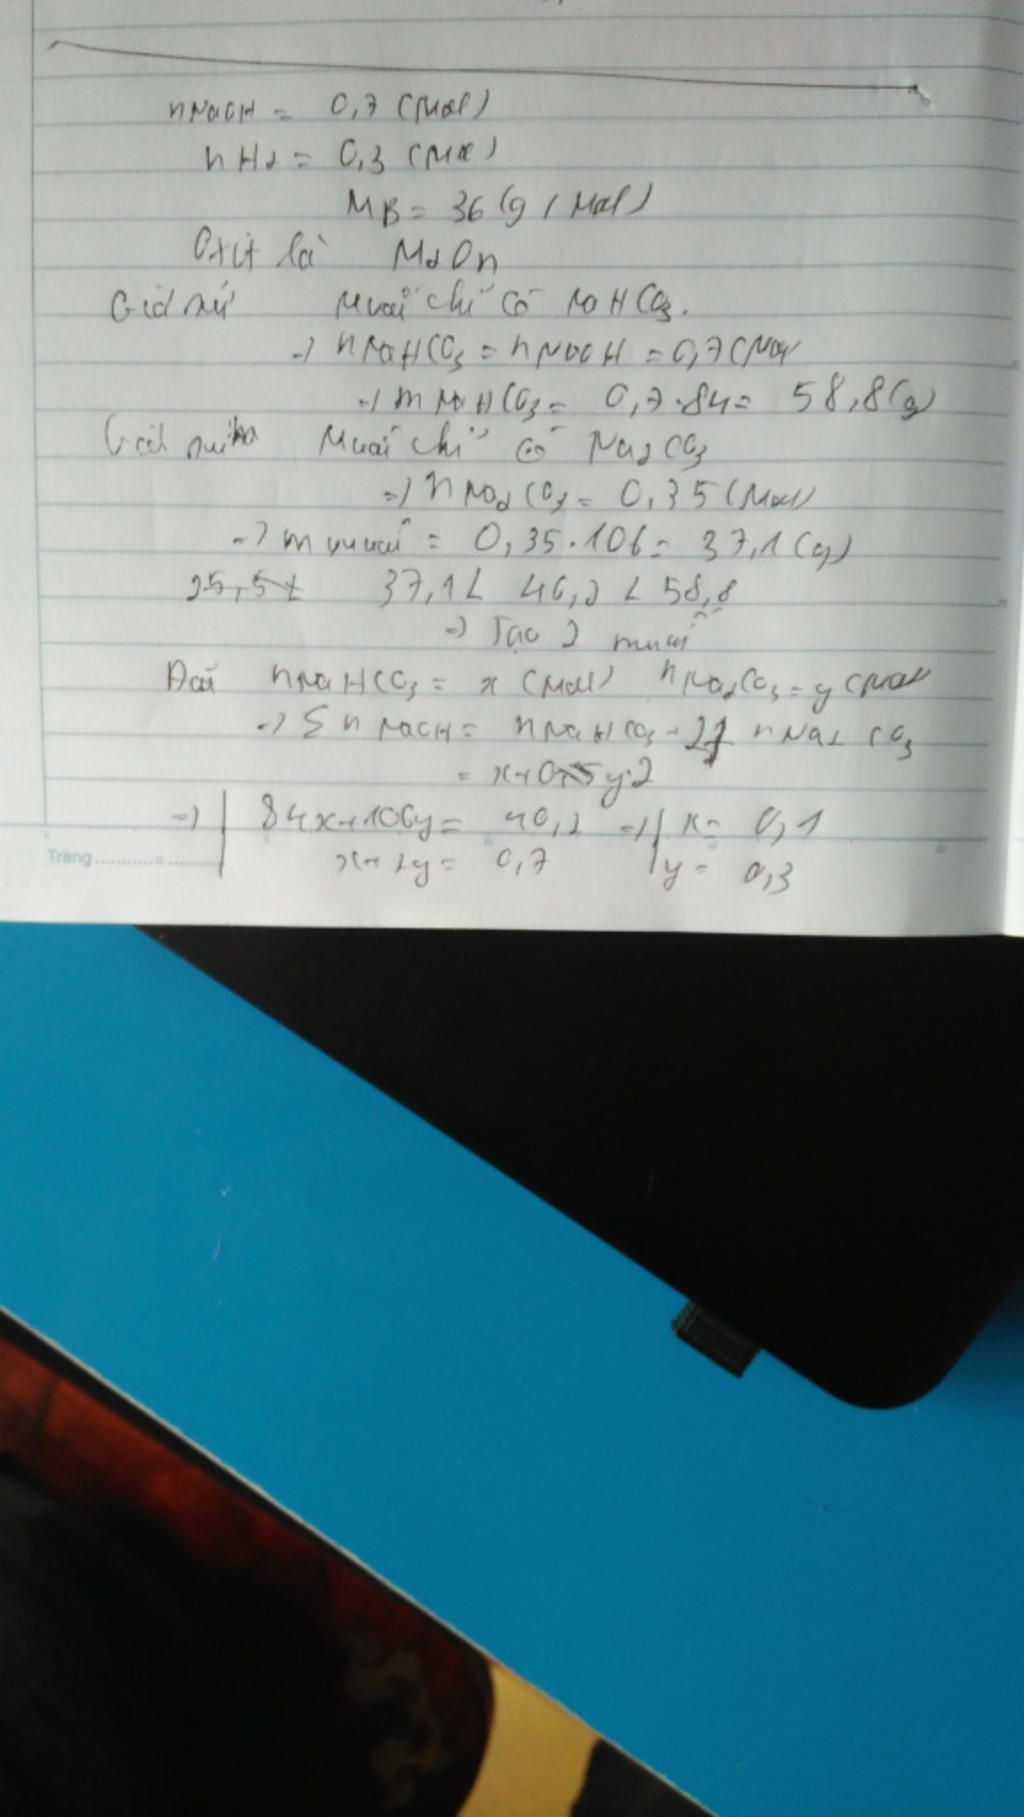 nNaOH = 0,7 (mol)
nH2 = 0,3 (mol)
MB = 36 (g/mol)
Oxit là M2On
Giả sử muối chỉ có NaHCO3.
=> nNaHCO3 = nNaOH = 0,7 (mol
=> mNaHCO3 = 0,7.84 = 58,8 (g)
Giả sử muối chỉ có Na2CO3
=> nNa2CO3 = 0,35 (mol)
=> m muối = 0,35.106 = 37,1 (g)
25,5 < 37,1 < 46,2 < 58,8
=> Tạo 2 muối
Đặt nNaHCO3 = x (mol) nNa2CO3 = y (mol
=> Σ nNaOH = nNaHCO3 + 2 nNa2CO3
= x + y.2
=> 84x + 106y = 40,2 => x = 0,1
x + 2y = 0,7 y = 0,3
Trang